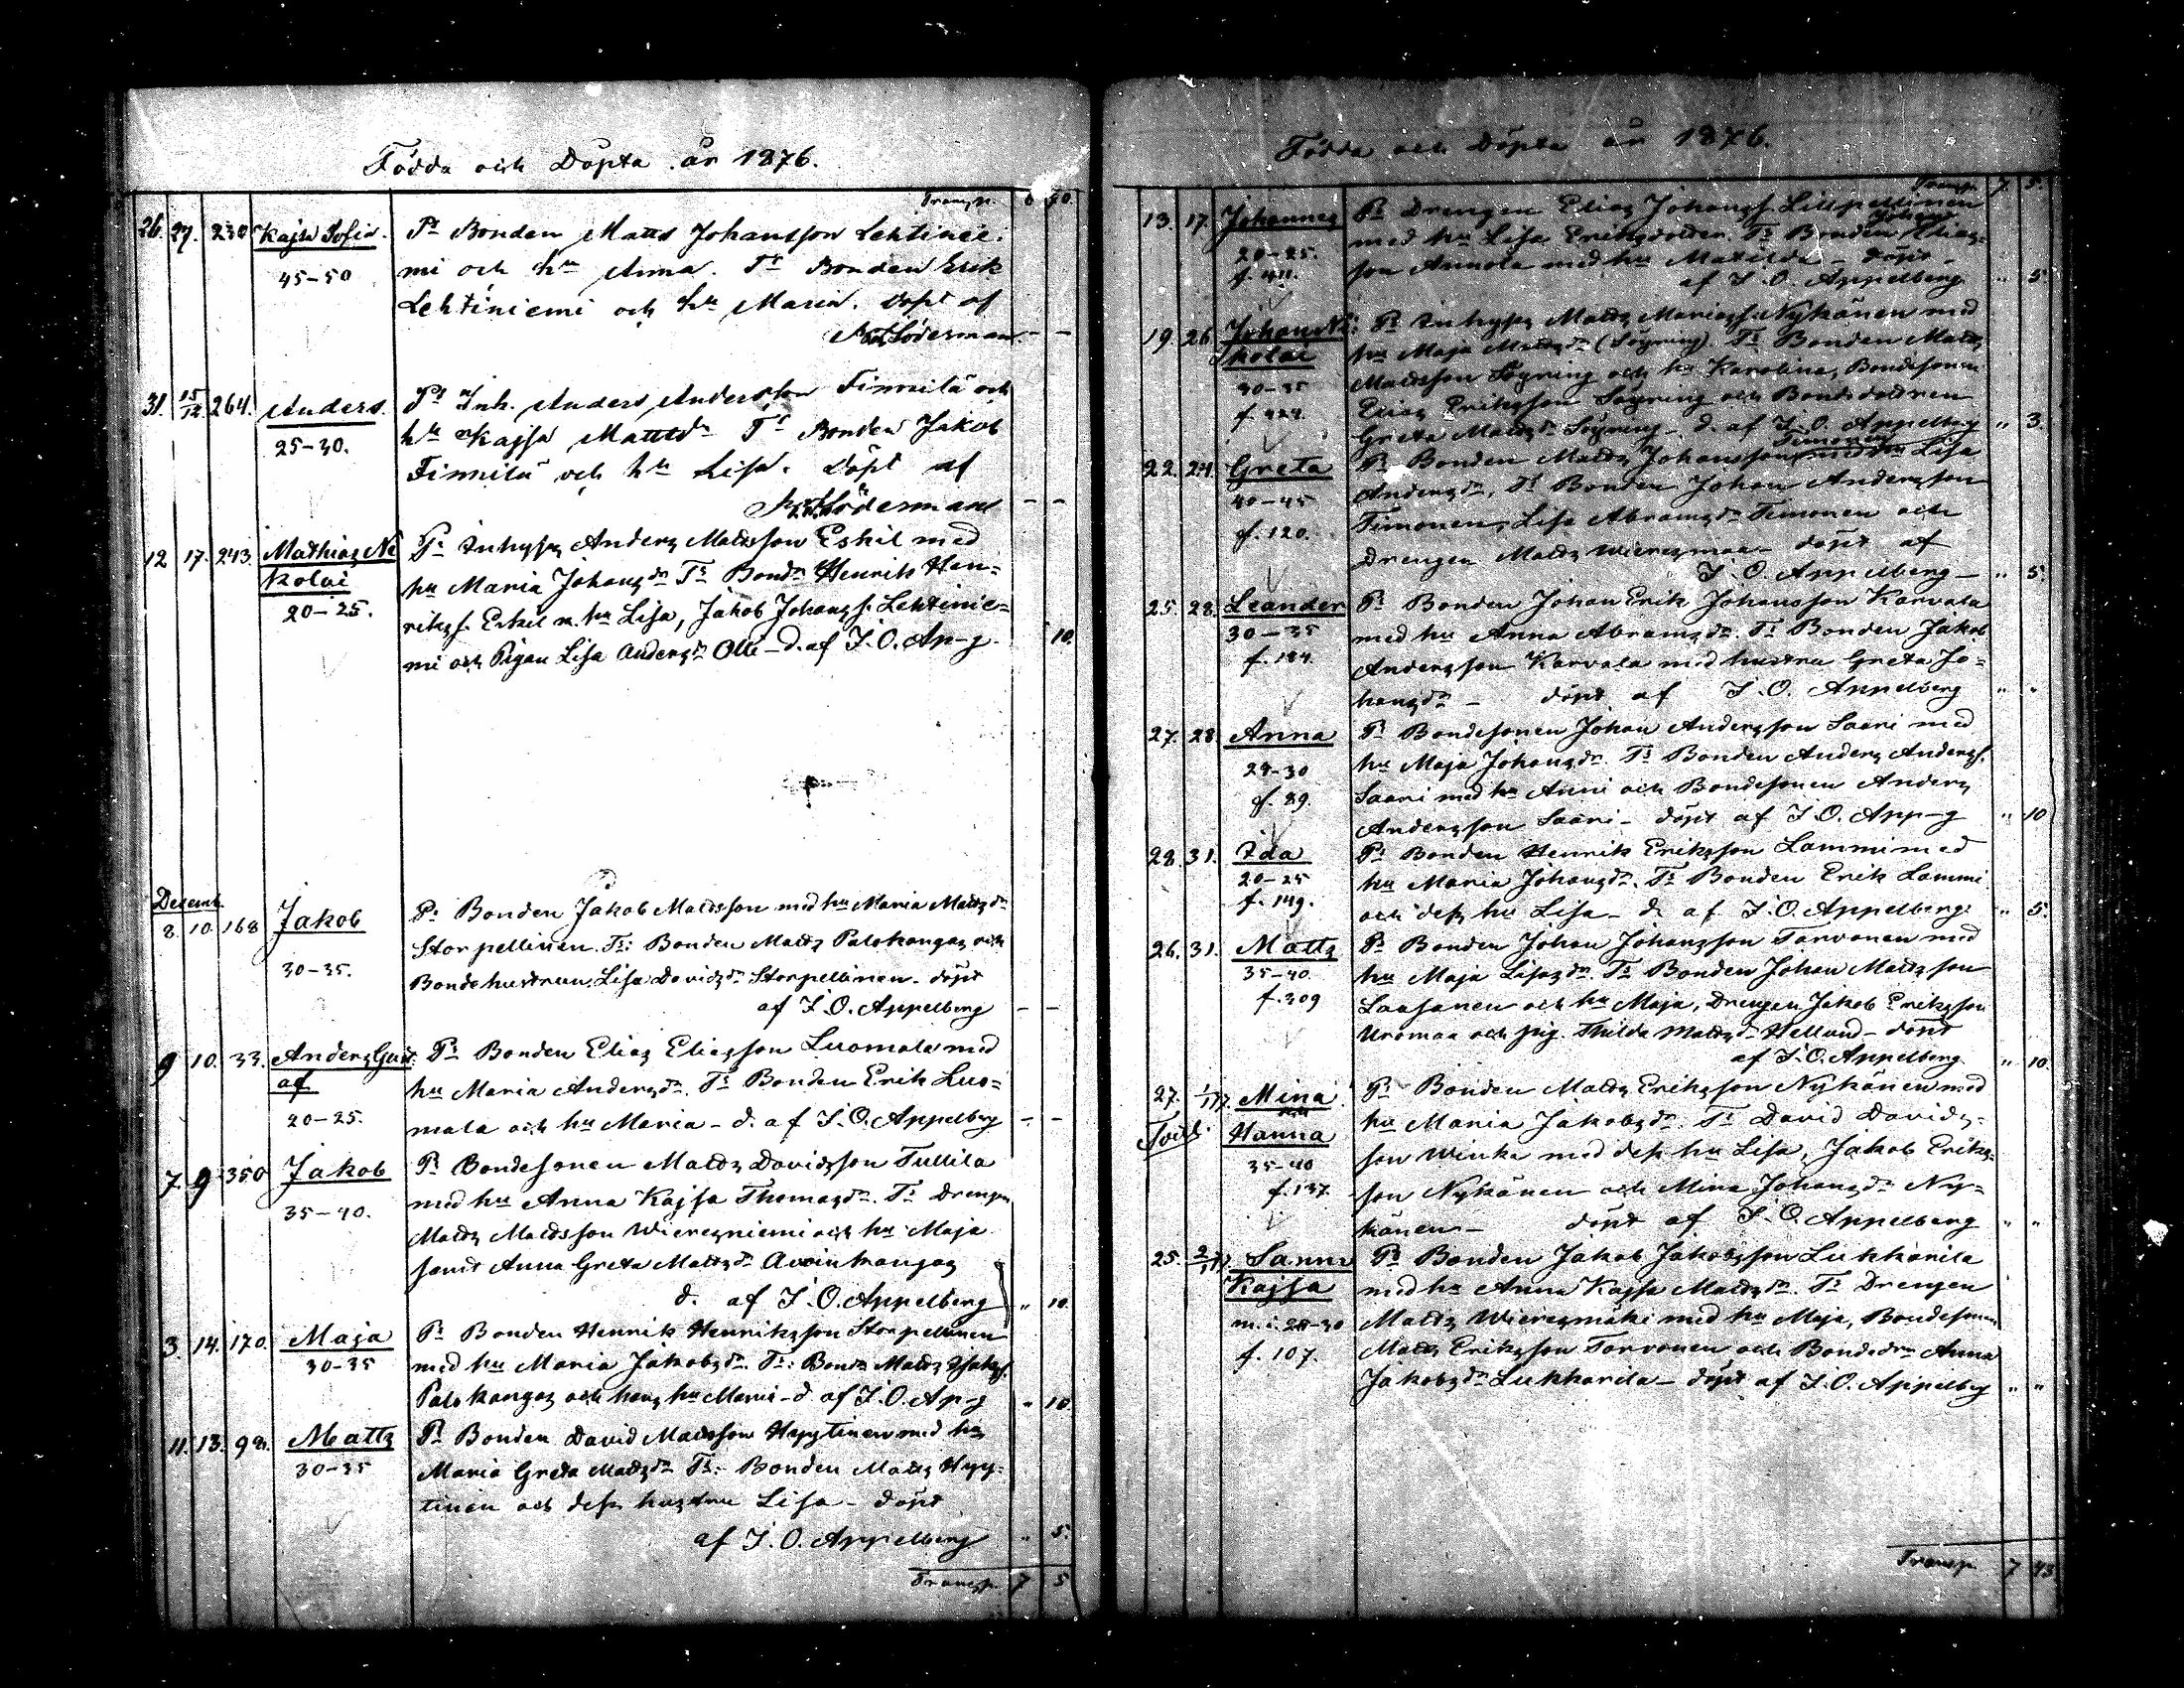 Födda och Döpta år 1876.
Transp. 6 50.
26. 27. 230 Kajsa Sofia. Pr Bonden Matts Johansson Lehtinie:
45-50 mi och hu Anna. Tr Bonden Erik
Lehtiniemi och hu Maria. Döpt af
Söderman. - -
31. 15/12 264. Anders. Pr Inh. Anders Andersson Finnilä och
25-30. hu Kajsa Mattsdr Tr Bonden Jakob
Finnilä och hu Lisa. Döpt af
Söderman - -
12 17. 243. Mathias Ni Pr Inhyses Anders Mattsson Eskil med
kolai hu Maria Johansdr Tr Bondn Henrik Hen=
20-25. riksf. Eskil m. hu Lisa, Jakob Johansf. Lehtinie=
mi och Pigan Lisa Andersdr Olli - d. af I. O. Ap-g. 10.
Decemb.
8. 10. 168 Jakob Pr Bonden Jakob Mattsson med hu Maria Mattsdr
Storpellinen. Tr: Bonden Matts Palokangas och
30-35. Bondehustrun Lisa Davidsdr Storpellinen - döpt
af I. O. Appelberg - -
9 10. 33. Anders Gust Pr Bonden Elias Eliasson Luomala med
af hu Maria Andersdr. Tr Bonden Erik Luo=
20-25. mala och hu Maria - d. af I. O. Appelberg - -
7. 9. 350 Jakob Pr Bondesonen Matts Davidsson Tullila
35-40. med hu Anna Kajsa Thomasdr. Tr Drengen
Matts Mattsson Wieresniemi och hu Maja
samt Anna Greta Mattsdr Avoinkangas
d. af I. O. Appelberg " 10.
3. 14. 170. Maja Pr Bonden Henrik Henriksson Storpellinen
30-35 med hu Maria Jakobsdr. Tr: Bond. Matts Isaksf.
Palokangas och hans hu Maria - d. af I. O. Ap-g " 10.
11. 13. 98. Matts Pr Bonden David Mattsson Hyytinen med hu
30-35 Maria Greta Mattsdr Tr: Bonden Matts Hyy-
tinen och dess hustru Lisa - döpt
af I. O. Appelberg " 5.
Transp. 7 5
Födda och Döpta år 1876.
Transp. 7. 5.
13. 17. Johannes Pr Drengen Elias Johansf. Lillpellinen
20-25. med hu Lisa Eriksdotter. Tr Bonden Johan Elias-
f. 411. son Annola med hu Matilda - döpt -
af I. O. Appelberg " 5.
19. 26. Johan Ni: Pr Inhyses Matts Mariasf. Nykänen med
kolai hu Maja Mattsdr (Söyring). Tr Bonden Matts
30-35 Mattsson Söyring och hu Karolina, Bondesonen
f. 424. Elias Eriksson Söyring och Bondedottren
Greta Mattsdr Söyring - d. af I. O. Appelberg " 3.
22. 24. Greta Pr Bonden Matts Johansson Timonen Lisa
40-45 Andersdr, Tr Bonden Johan Andersson
f. 120. Timonen, Lisa Abramsdr Timonen och
Drengen Matts Wieresmaa - döpt af
I. O. Appelberg - " 5.
25. 28. Leander Pr Bonden Johan Erik Johansson Karvala
30-35 med hu Anna Abramsdr. Tr Bonden Jakob
f. 184. Andersson Karvala med hustru Greta Jo=
hansdr - döpt af I. O. Appelberg " "
27. 28. Anna Pr Bondesonen Johan Andersson Saari med
29-30 hu Maja Johansdr. Tr Bonden Anders Andersf.
f. 89. Saari med hu Anni och Bondesonen Anders
Andersson Saari - döpt af I. O. App-g " 10
28. 31. Ida Pr Bonden Henrik Eriksson Lammi med
20-25 hu Maria Johansdr. Tr Bonden Erik Lammi
f. 149. och dess hu Lisa - d. af I. O. Appelberg: " 5.
26. 31. Matts Pr Bonden Johan Johansson Tarvonen med
35-40. hu Maja Lisasdr. Tr Bonden Johan Mattsson
f. 309 Laasanen och hu Maja, Drengen Jakob Eriksson
Uromaa och pig. Thilda Mattsdr Hellund - döpt
af I. O. Appelberg. " 10.
27. 1/1 77. Mina Pr Bonden Matts Eriksson Nykänen med
Tvill. och Hanna hu Maria Jakobsdr. Tr David Davids-
35-40 son Winka med dess hu Lisa, Jakob Eriks-
f. 137. son Nykänen och Mina Johansdr Ny=
känen - döpt af I. O. Appelberg " "
25. 2/1 77. Sanna Pr Bonden Jakob Jakobsson Lukkarila
Kajsa med hu Anna Kajsa Mattsdr. Tr Drengen
m. i. 20-30 Matts Wieresmäki med hu Maja, Bondesonen
f. 107. Matts Eriksson Torvonen och Bondedrn Anna
Jakobsdr Lukkarila - döpt af I. O. Appelberg " "
Transp. 7 48